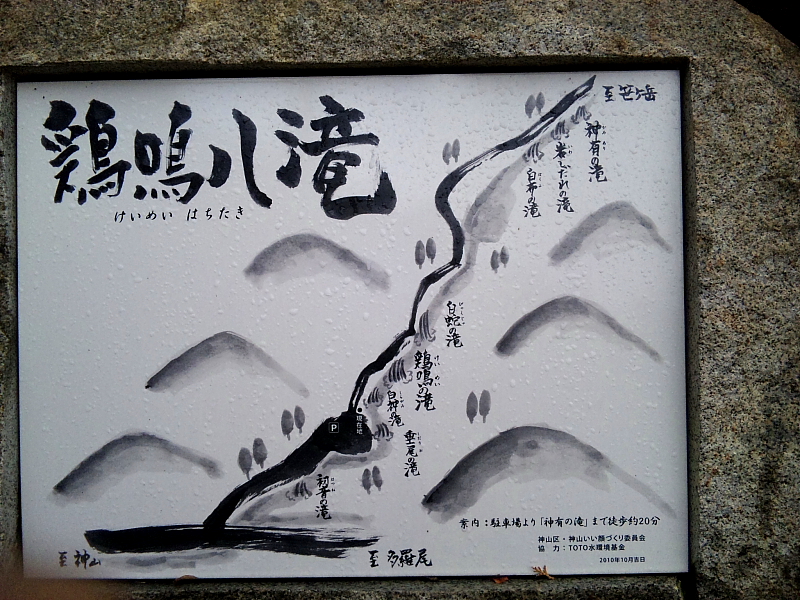 鶏鳴八滝
けいめい はちたき
至 笹ヶ岳
神有の滝
岩しだれの滝
白布の滝
白蛇の滝
鶏鳴の滝
けい めい
白神の滝
現在地
P
垂尾の滝
初音の滝
案内：駐車場より「神有の滝」まで徒歩約20分
神山区・神山いい顔づくり委員会
協　力：TOTO水環境基金
2010年10月吉日
至 神山
至 多羅尾